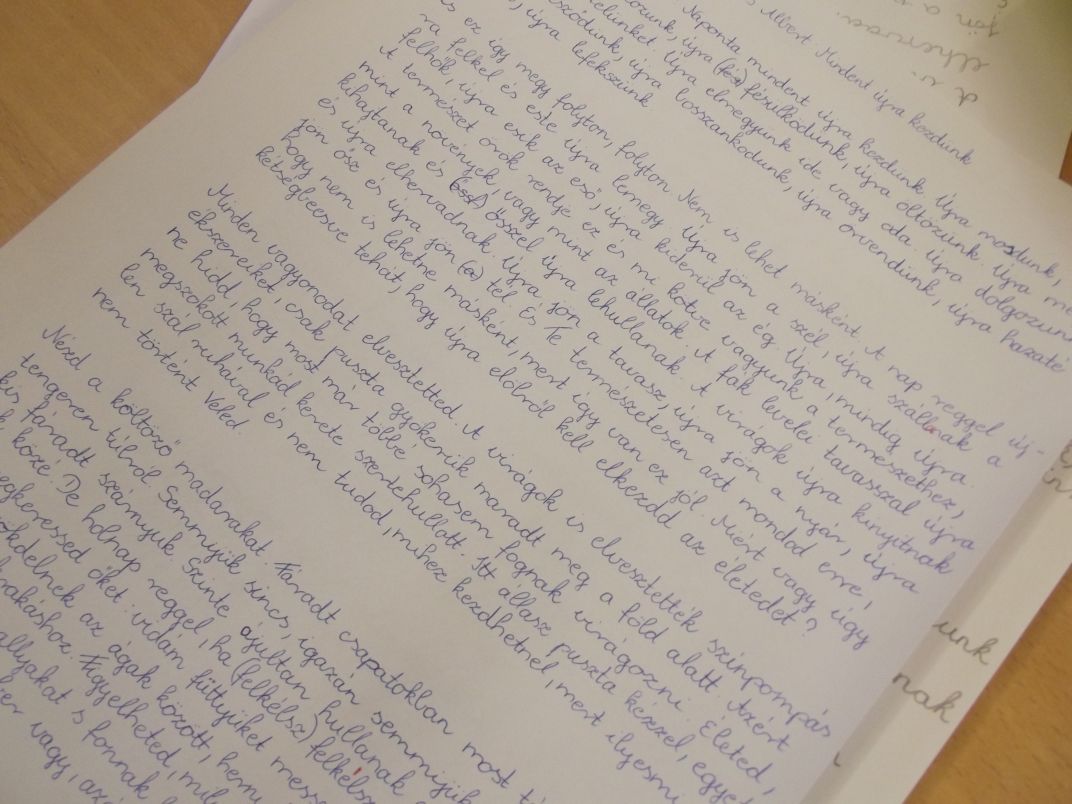 Albert. Mindent újra kezdünk
Naponta mindent újra kezdünk. Újra mosdunk,
újra (fés) fésülködünk, újra öltözünk. Újra
Újra elmegyünk ide vagy oda. Újra dolgozunk
újra bosszankodunk, újra örvendünk, újra
újra lefekszünk
is ez így megy folyton, folyton. Nem is lehet másként. A nap reggel új-
ra felkel és este újra lemegy. Újra jön a szél, újra szállnak a
felhők, újra esik az eső, újra kiderül az ég. Újra, mindig újra.
A természet örök rendje ez és mi kötve vagyunk a természethez,
mint a növények, vagy mint az állatok. A fák levelei tavasszal újra
kihajtanak és (őssz) ősszel újra lehullanak. A virágok újra kinyitnak
és újra elhervadnak. Újra jön a tavasz, újra jön a nyár, újra
jön ősz és újra jön (a) tél. És Te természetesen azt mondod erre,
hogy nem is lehetne másként, mert így van ez jól. Miért vagy úgy
kétségbeesve tehát, hogy újra előlről kell elkezdd az életedet?
Minden vagyonodat elvesztetted. A virágok is elvesztették színpompás
ékszereiket, csak puszta gyökerük maradt meg a föld alatt. Azért
ne hidd, hogy most már többé sohasem fognak virágozni. Életed,
megszokott munkád kerete szertehullott. Itt állasz puszta kézzel, egyet
len szál ruhával és nem tudod, mihez kezdhetnél, mert ilyesmi
nem történt Veled.
Nézd a költöző madarakat. Fáradt csapatokban most
tengeren túlról. Semmijük sincs, igazán semmijük
kis fáradt szárnyuk. Szinte ájultan hullanak
közé. De holnap reggel, ha (felkélsz) felkelsz
őket: vidám füttyüket
az ágak között,
Figyelheted,
s fonnak
vagy,
unk
nak